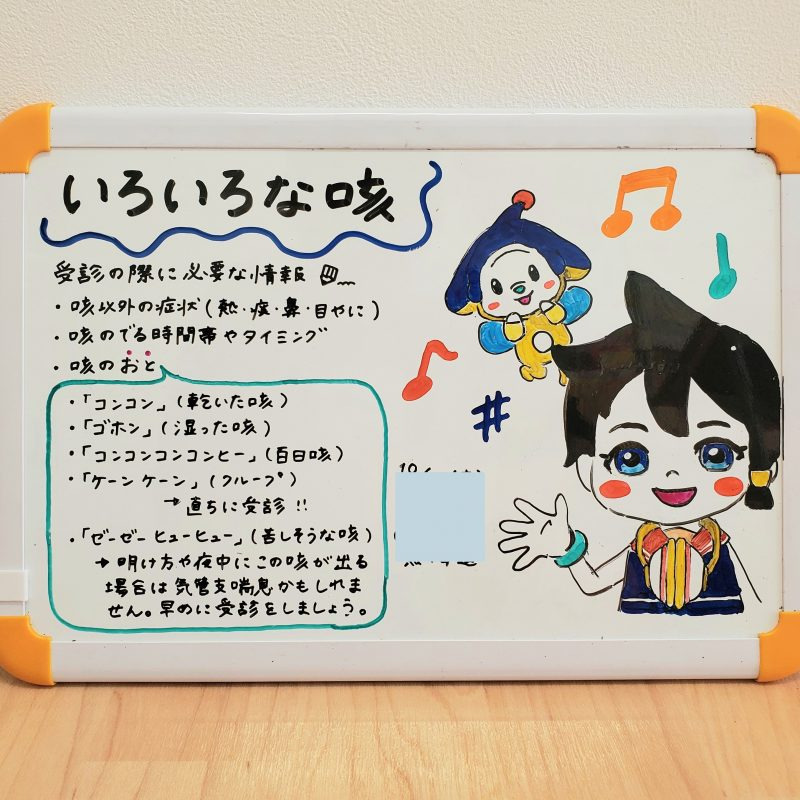 いろいろな咳
受診の際に必要な情報
・咳以外の症状(熱・痰・鼻・目やに)
・咳のでる時間帯やタイミング
・咳のおと
・「コンコン」(乾いた咳)
・「ゴホン」(湿った咳)
・「コンコンコンコンヒー」(百日咳)
・「ケーンケーン」(クループ)
→直ちに受診!!
・「ゼーゼーヒューヒュー」(苦しそうな咳)
→明け方や夜中にこの咳が出る
場合は気管支喘息かもしれま
せん。早めに受診をしましょう。
#